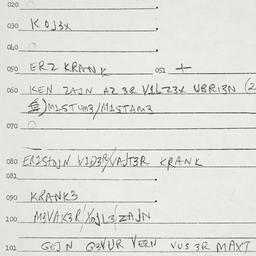 020
030 K OJ3X
040
050 ER2 KRANK 051 +
060 KEN ZAJN AZ 3R V1LZ3X UBRI3N (2
) M1STUM3/M1STAM3
070
080 ER2SHJN V1D3R/VAJT3R KRANK
081
090 KRANK3
100 M3VAK3R/XOJL3/ZAJN
101 GEJN G3VUR VERN VUS 3R MAXT